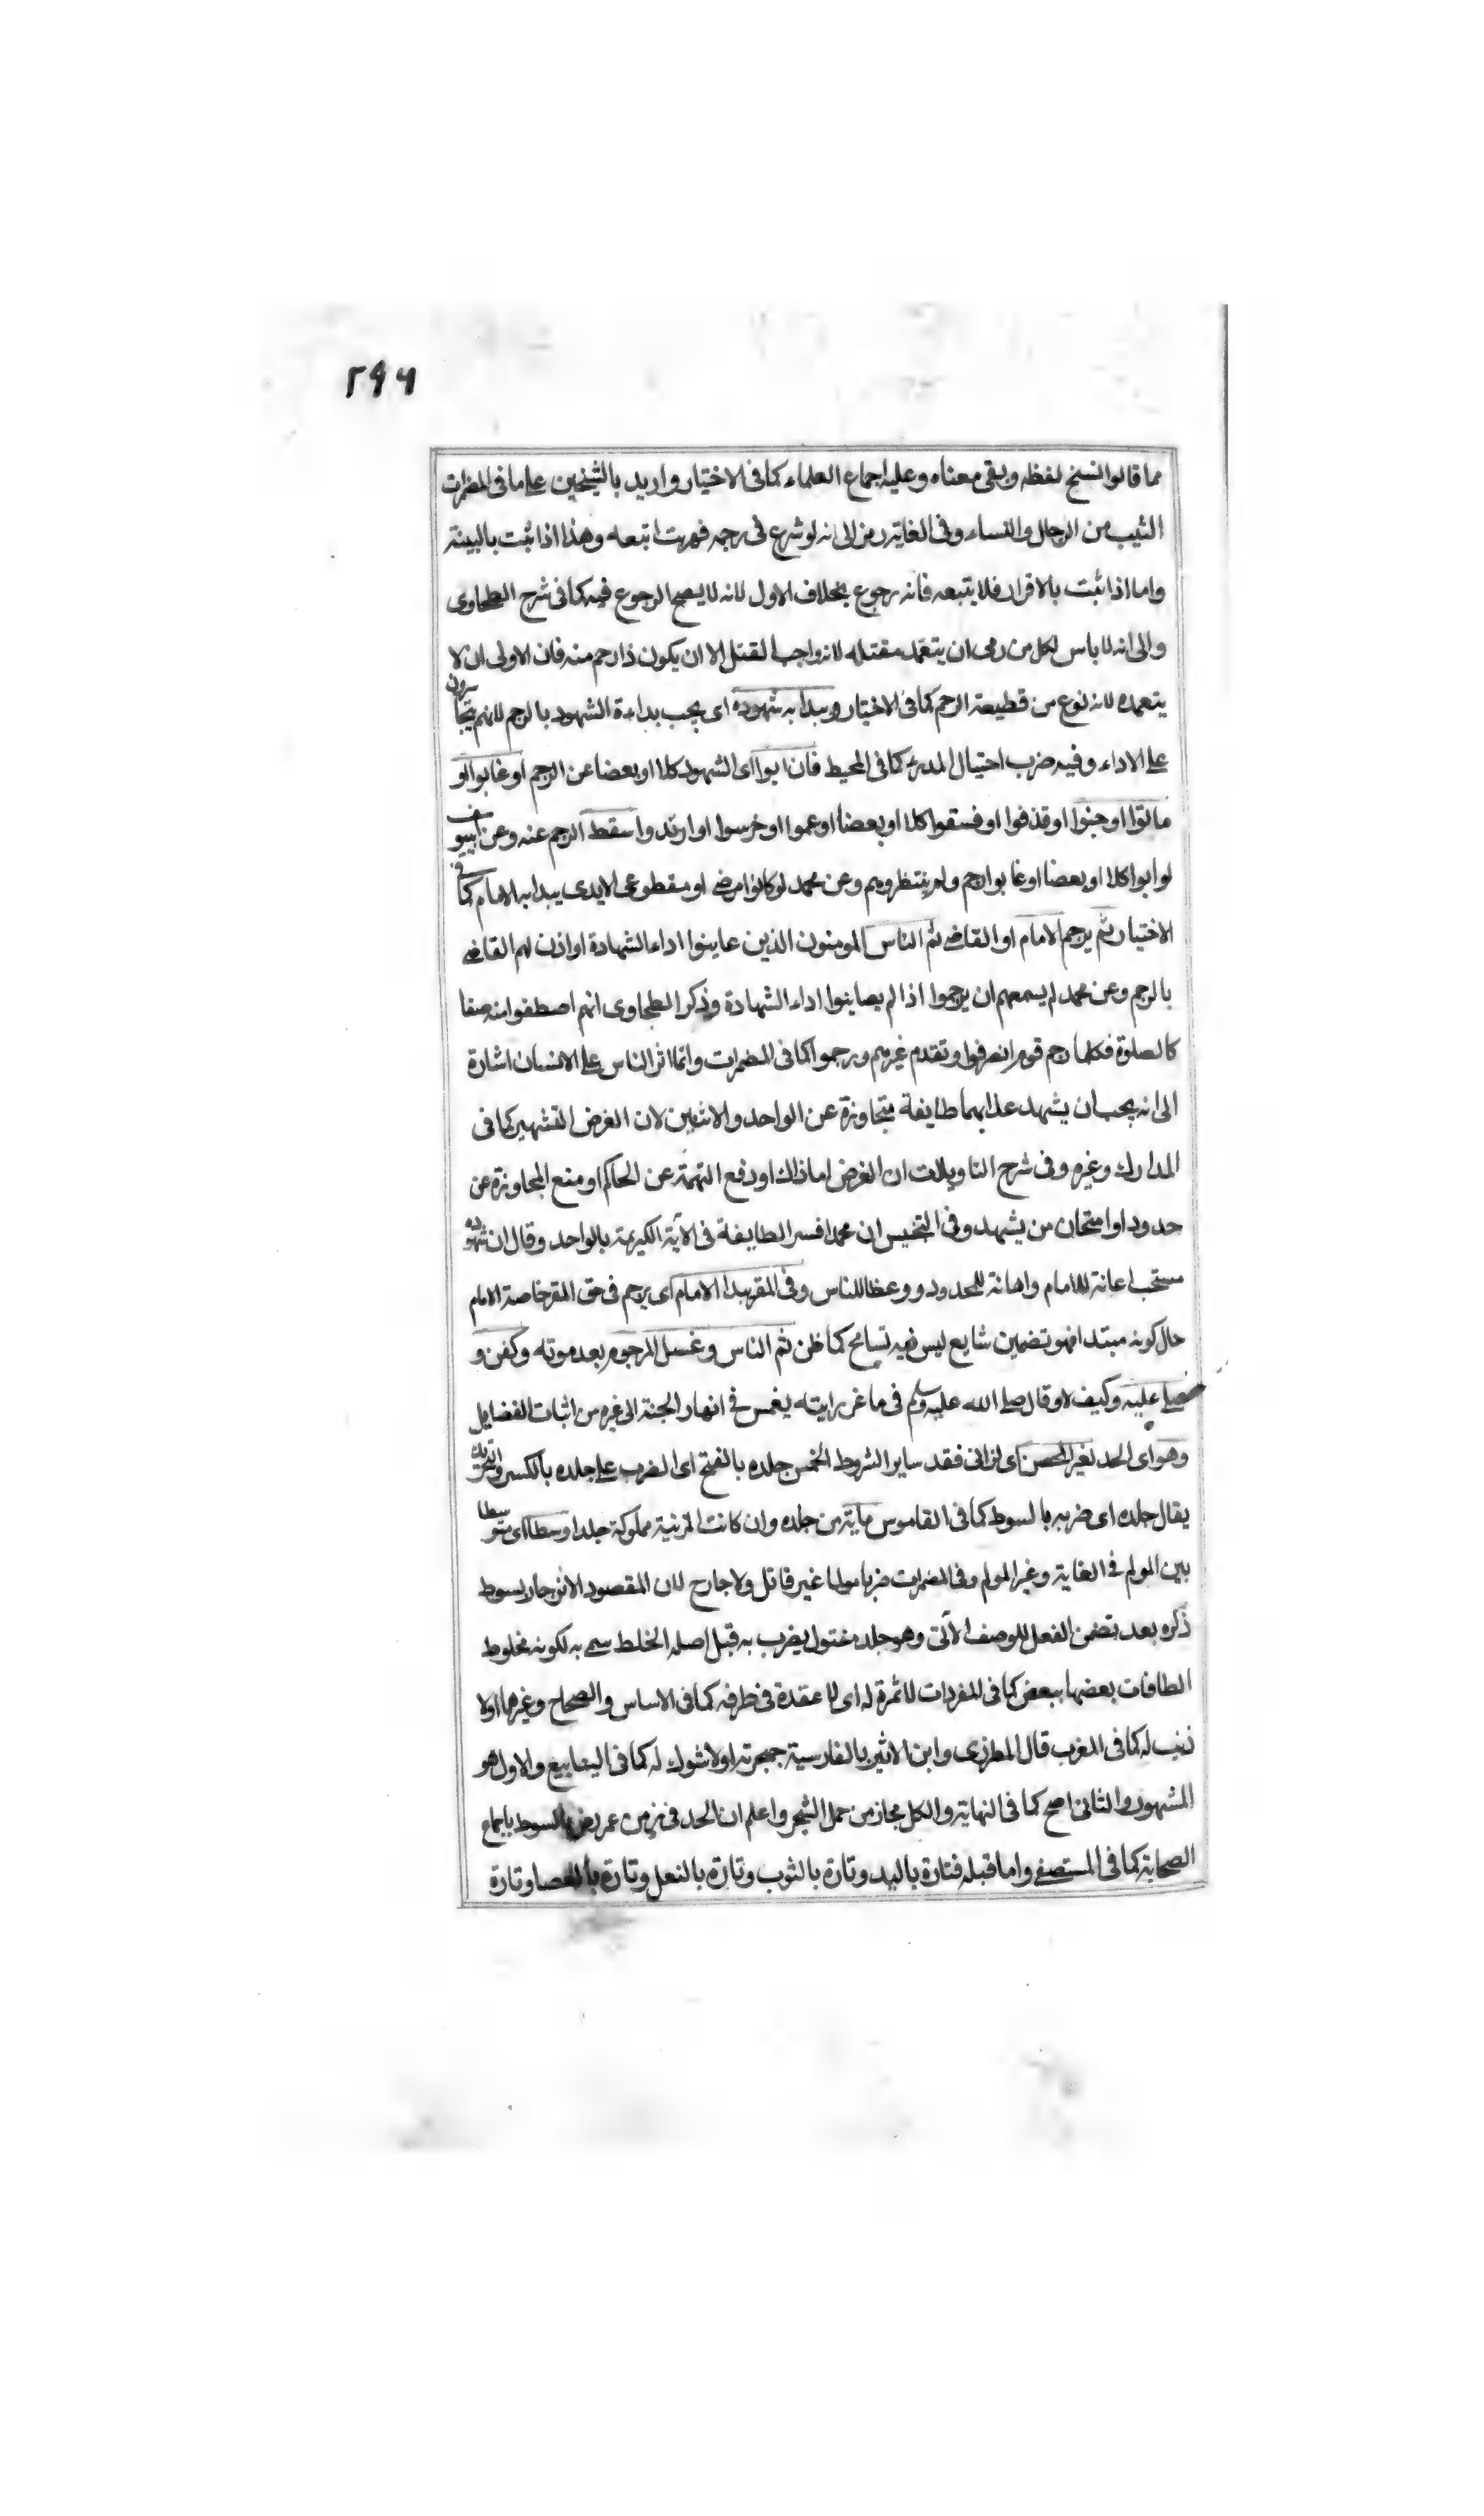 ٢٩٦
مما قالوا النسخ لفظه وبقى معناه وعليه اجماع العلماء كما فى الاختيار واريد بالشيخين على ما فى المضمرات
الثيب من الرجال والنساء وفى الغاية رمز الى انه لو شرع فى رجمه فهرب اتبعه وهذا اذا ثبت بالبينة
واما اذا ثبت بالاقرار فلا يتبعه فانه رجوع بخلاف الاول لانه لا يصح الرجوع فيه كما فى شرح الطحاوى
والى انه لا باس لكل من رمى ان يتعمد مقتله لانه واجب القتل الا ان يكون ذا رحم منه فان الاولى ان لا
يتعمده لانه نوع من قطيعة الرحم كما فى الاختيار ويبدا به شهوده اى يجب بداءة الشهود بالرجم لانهم يتجاسرون
على الاداء وفيه ضرب احتيال للدرء كما فى المحيط فان ابوا اى الشهود كلا او بعضا عن الرجم او غابوا او
ماتوا او جنوا او قذفوا او فسقوا كلا او بعضا او عموا او خرسوا او ارتدوا سقط الرجم عنه وعن ابيوسف
لو ابوا كلا او بعضا او غابوا رجم ولم ينتظروهم وعن محمد لو كانوا مرضى او مقطوعى الايدى يبدا به الامام كما فى
الاختيار ثم يرجم الامام او القاضى ثم الناس المومنون الذين عاينوا اداء الشهادة او اذن لهم القاضى
بالرجم وعن محمد لم يسمعهم ان يرجموا اذا لم يعاينوا اداء الشهادة وذكر الطحاوى انهم اصطفوا منه صفا
كالصلوة فكلما رجم قوم انصرفوا وتقدم غيرهم ورجموا كما فى المضمرات وانما اثر الناس على الانسان اشارة
الى انه يجب ان يشهد عذابهما طايفة متجاوزة عن الواحد والاثنين لان الغرض التشهير كما فى
المدارك وغيره وفى شرح التاويلات ان الغرض اما ذاك او دفع التهمة عن الحاكم او منع المجاوزة عن
حدود او امتحان من يشهد وفى التجنيس ان محمدا فسر الطايفة فى الآية الكريمة بالواحد وقال ان شهوده
مستحب اعانة للامام واهانة للمحدود ووعظا للناس وفى المقر يبدا الامام اى يرجم فى حق المقر خاصة الامام
حال كونه مبتدا فهو تضمين شايع ليس فيه تسامح كما ظن ثم الناس وغسل المرجوم بعد موته وكفن و
صلى عليه وكيف لا وقال صلى الله عليه وسلم فى ماعز رايته يغمس فى انهار الجنة الى غيره من اثبات الفضايل
وهو اى الحد لغير المحصن اى لزانى فقد ساير الشروط الخمس جلده بالفتح اى الضرب على جلده بالكسر والتحريك
يقال جلده اى ضربه بالسوط كما فى القاموس ماية من جلده وان كانت المزنية مملوكة جلدا وسطا اى متوسطا
بين المولم فى الغاية وغير المولم وفى المضمرات ضربا مولما غير قاتل ولا جارح لان المقصود الانزجار بسوط
ذكره بعد تضمن الفعل للوصف الآتى وهو جلد مفتول يضرب به قيل اصله الخلط سمى به لكونه مخلوط
الطاقات بعضها ببعض كما فى المفردات لا ثمرة له اى لا عقدة فى طرفه كما فى الاساس والصحاح وغيرهما او لا
ذنب له كما فى المغرب قال المطرزى وابن الاثير بالفارسية او لا شوك له كما فى الينابيع والاول هو
المشهور والثانى اصح كما فى النهاية والكل مجاز من حمل الشجر واعلم ان الحد فى زمن عمر رض بالسوط باجماع
الصحابة كما فى المستصفى واما قبله فتارة باليد وتارة بالثوب وتارة بالنعل وتارة بالعصا وتارة